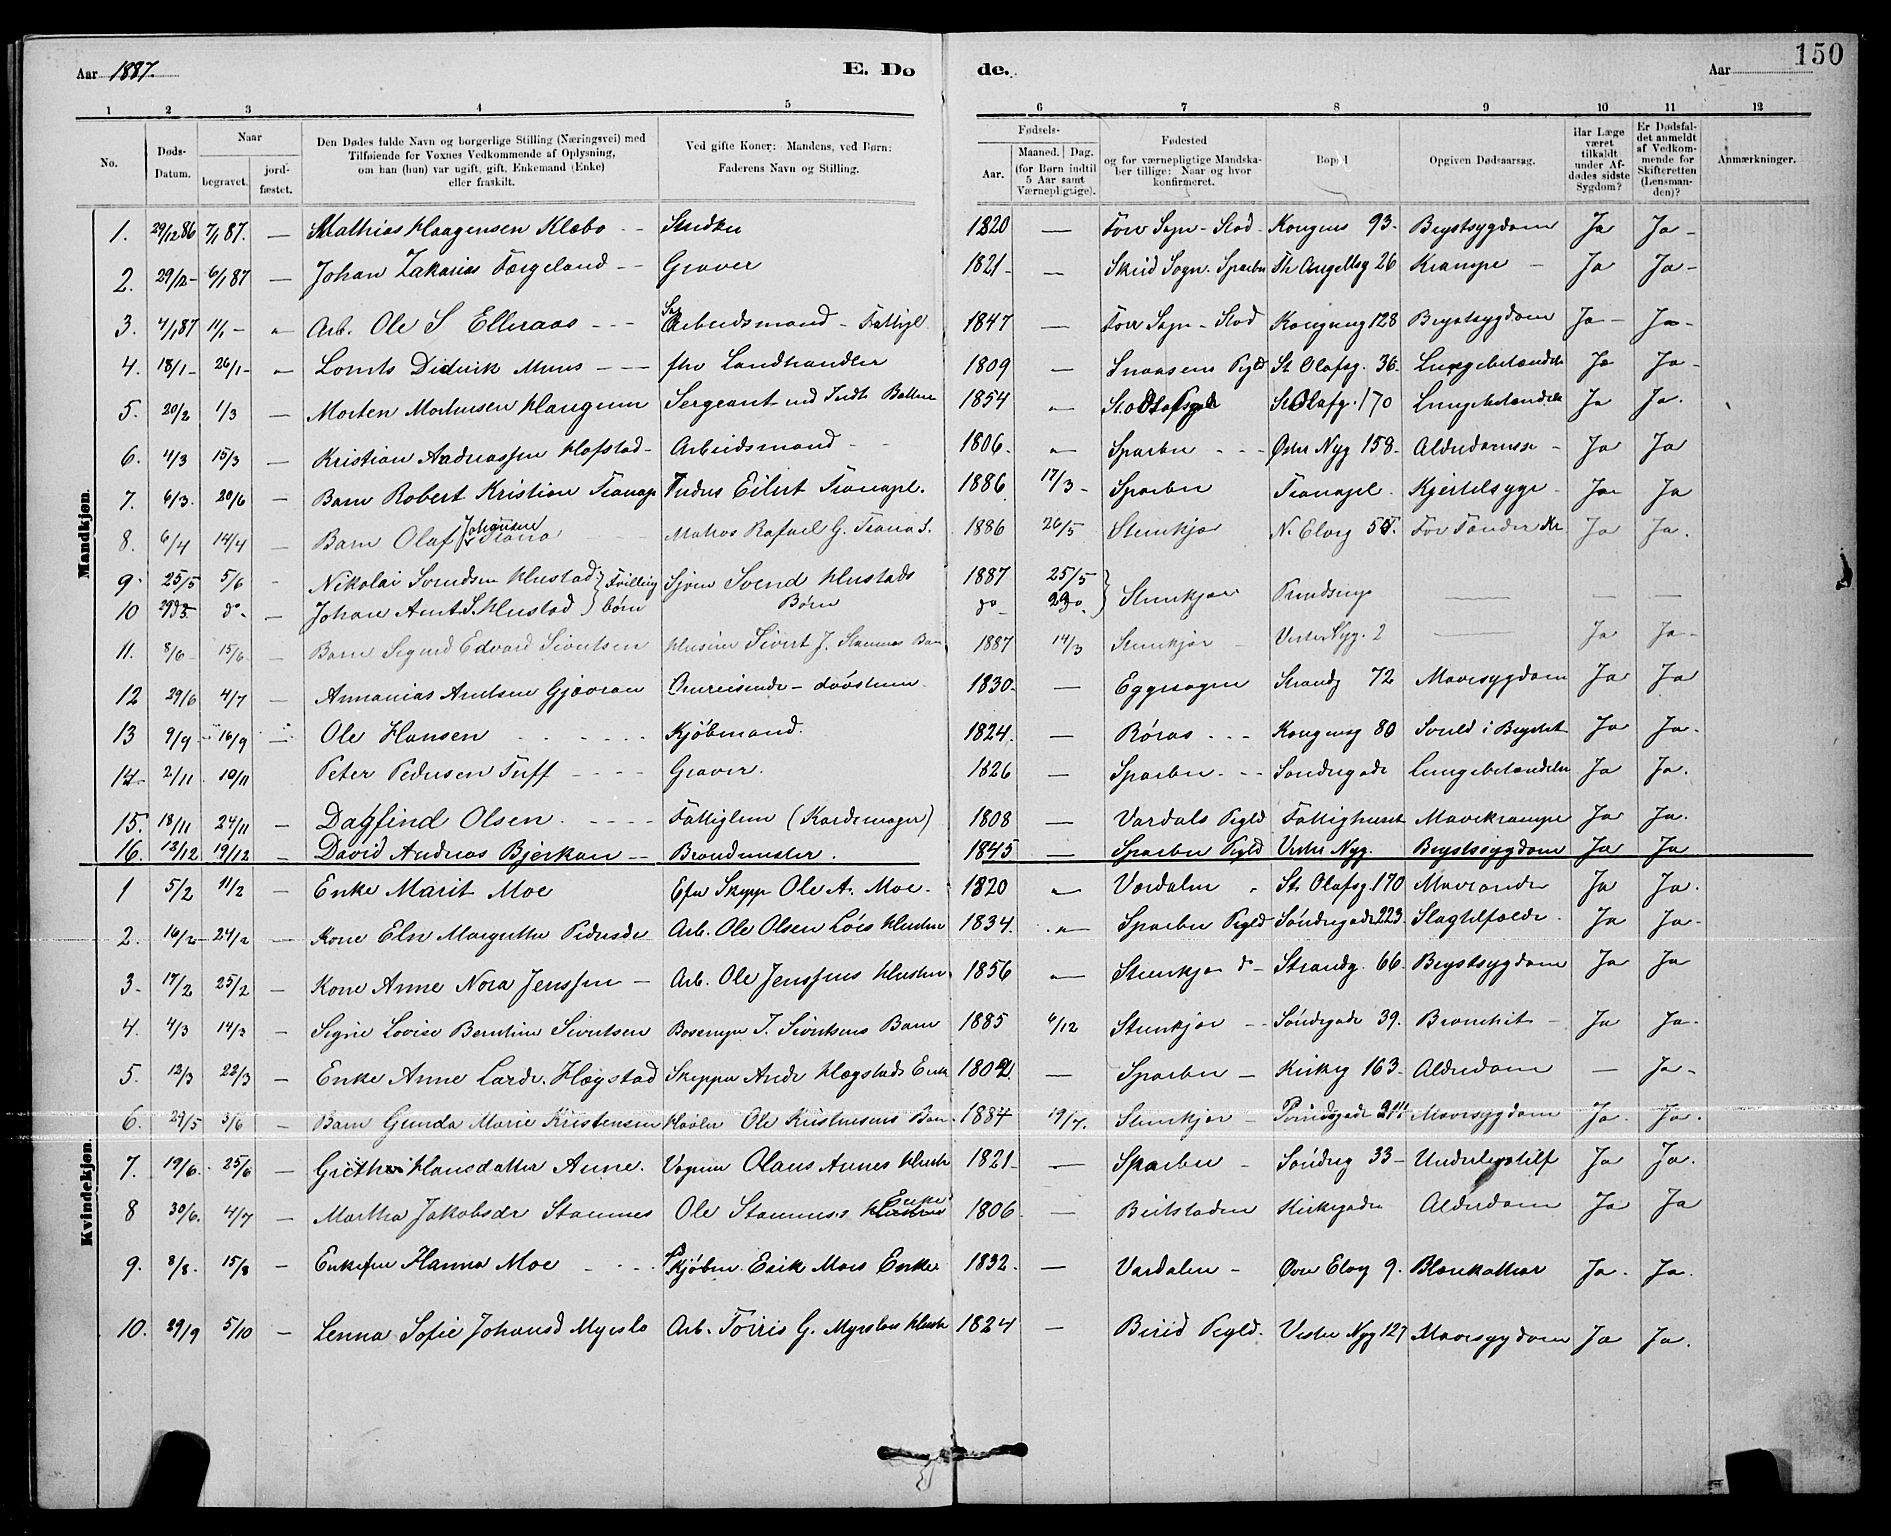 150
Aar 1887. E. Dø de. Aar
1 2 3 4 5 6 7 8 9 10 11 12
No. Døds-Datum. Naar begravet. jordfæstet. Den Dødes fulde Navn og borgerlige Stilling (Næringsvei) med Tilføiende for Voxnes Vedkommende af Oplysning, om han (hun) var ugift, gift, Enkemand (Enke) eller fraskilt. Ved gifte Koner: Mandens, ved Børn: Faderens Navn og Stilling. Fødsels- Aar. Maaned. Dag. (for Børn indtil 5 Aar samt Værnepligtige). Fødested og for værnepligtige Mandskaber tillige: Naar og hvor konfirmeret. Bopæl Opgiven Dødsaarsag. Har Læge været tilkaldt under Afdødes sidste Sygdom? Er Dødsfaldet anmeldt af Vedkommende for Skifteretten (Lensmanden)? Anmærkninger.
Mandkjøn.
1. 29/12 86 7/1 87. — Mathias Haagensen Klæbo -- Snedker 1820 — For Sogn - Stod - Kongens 93. Brystsygdom Ja Ja -
2. 29/12 - 6/1 87 — Johan Zakarias Færgeland -- Graver 1821 - — Sogn. Sparbu 26 Krampe - Ja Ja -
3. 4/1 87 11/1 - " Arb. Ole S Elleraas --- Arbeidsmand - 1847 — For Sogn - Stod Kongensg 128 Brystsygdom Ja - Ja -
4. 18/1 - 26/1 - " Lornts Didrik Muus --- fhv Landhandler 1809 — Snaasens Pgld St Olafsg. 36. Lungebetændelse Ja Ja -
5. 20/2 1/3 — Morten Mortensen Haugum Sergeant 1854 " St Olafg. 170 Lungebetændelse Ja Ja.
6. 4/3 15/3 — Kristian Andreassen Hofstad - Arbeidsmand - - 1806. " Sparbu - - - Øster Nyg 158. Alderdom - Ja Ja
7. 6/3. 20/6 - Barn Robert Kristian Eilert 1886 17/3 - Sparbu Kjertelsyge - Ja Ja
8. 6/4 14/4 — Barn Olaf Johansen Matros Rafael G. 1886 26/5 Stenkjær Ja Ja.
9. 25/5 5/6 - Nikolai Svendsen Hustad } Tvilling Svend Hustads 1887 25/5 } Stenkjær — — —
10 do - — Johan Arnt S. Hustad } børn Børn do - do.
11. 8/6 15/6 — Barn Sigurd Edvard Sivertsen Husmer Sivert J. Stamnes Barn 1887 14/3 Stenkjær - Vestre Nyg. 2 — Ja Ja -
12 29/6 4/7 — Annanias Antsen Gjævran Omreisende - døvstum 1830. — Eggesogen Strandg 72 Mavesygdom Ja Ja
13 9/9 - 16/9 — Ole Hansen - - - - - - Kjøbmand. 1824. — Røros - - - Kongensg 80 i Brystet Ja Ja.
14. 2/11 10/11 Peter Pedersen Tuff - - - - Graver. 1826 — Sparbu. - - Søndregade Lungebetændelse Ja Ja.
15. 18/11 24/11 — Dagfind Olsen. - - - - Fattiglem (Kardemager) 1808 — Værdals Pgld Fattighuset Mavekrampe Ja Ja.
16. 12/12 19/12 — David Andreas Bjerkan -- Brandmester. 1845 — Sparbu Pgld Vestre Nyg. Brystsygdom Ja Ja
Kvindekjøn.
1 5/2 11/2 - Enke Marit Moe Efter Skipp Ole A. Moe. 1820 " Værdalen " St. Olafsg. 170 Ja Ja.
2. 16/2 - 24/2 — Kone Elen Margrethe Pedersdr Arb. Ole Olsen Løes Hustru 1834. " Sparbu Pgld Søndregade 223. Slagtilfælde. Ja Ja -
3. 17/2 25/2 — Kone Anne Nora Jenssen — Arb. Ole Jenssens Hustru 1856 " Stenkjær do - Strandg. 66. Brystsygdom Ja Ja
4. 4/3 14/3 — Signe Lovise Berntine Sivertsen J. Sivertsens Barn 1885 6/12 Stenkjær -- Søndregade 39. Bronchit - Ja Ja -
5. 12/3 22/3 — Enke Anne Lærdr. Hægstad Skipper Hægstads Enke 1802. — Sparbu — Kirkeg 163. Alderdom — Ja -
6. 27/5 3/6 - Barn Gunda Marie Kristensen Ole Kristensens Barn 1884 19/7. Stenkjær - Mavesygdom Ja. Ja.
7. 19/6. 25/6 — Grethe Hansdatter Anne. Vognm Olaus Annes Hustr 1821 - — Sparbu - Søndreg 33 - Ja Ja.
8 30/6. 4/7 — Martha Jakobsdr Stamnes Ole Stamnes's Hustru Enke 1806. — Beitstaden Kirkegaden Alderdom Ja Ja
9. 8/8. 15/8 — Enkefru Hanna Moe - - - - Kjøbm. Erik Moes Enke 1832. — Værdalen - Øvre Elvg 9. Blærekathar Ja. Ja.
10. 29/9 5/10 — Lenna Sofie Johansd Myrslo Arb. Toris G. Myrsloes Hustr 1824 — Pgld. Vestre Nyg 127 Mavesygdom Ja Ja.